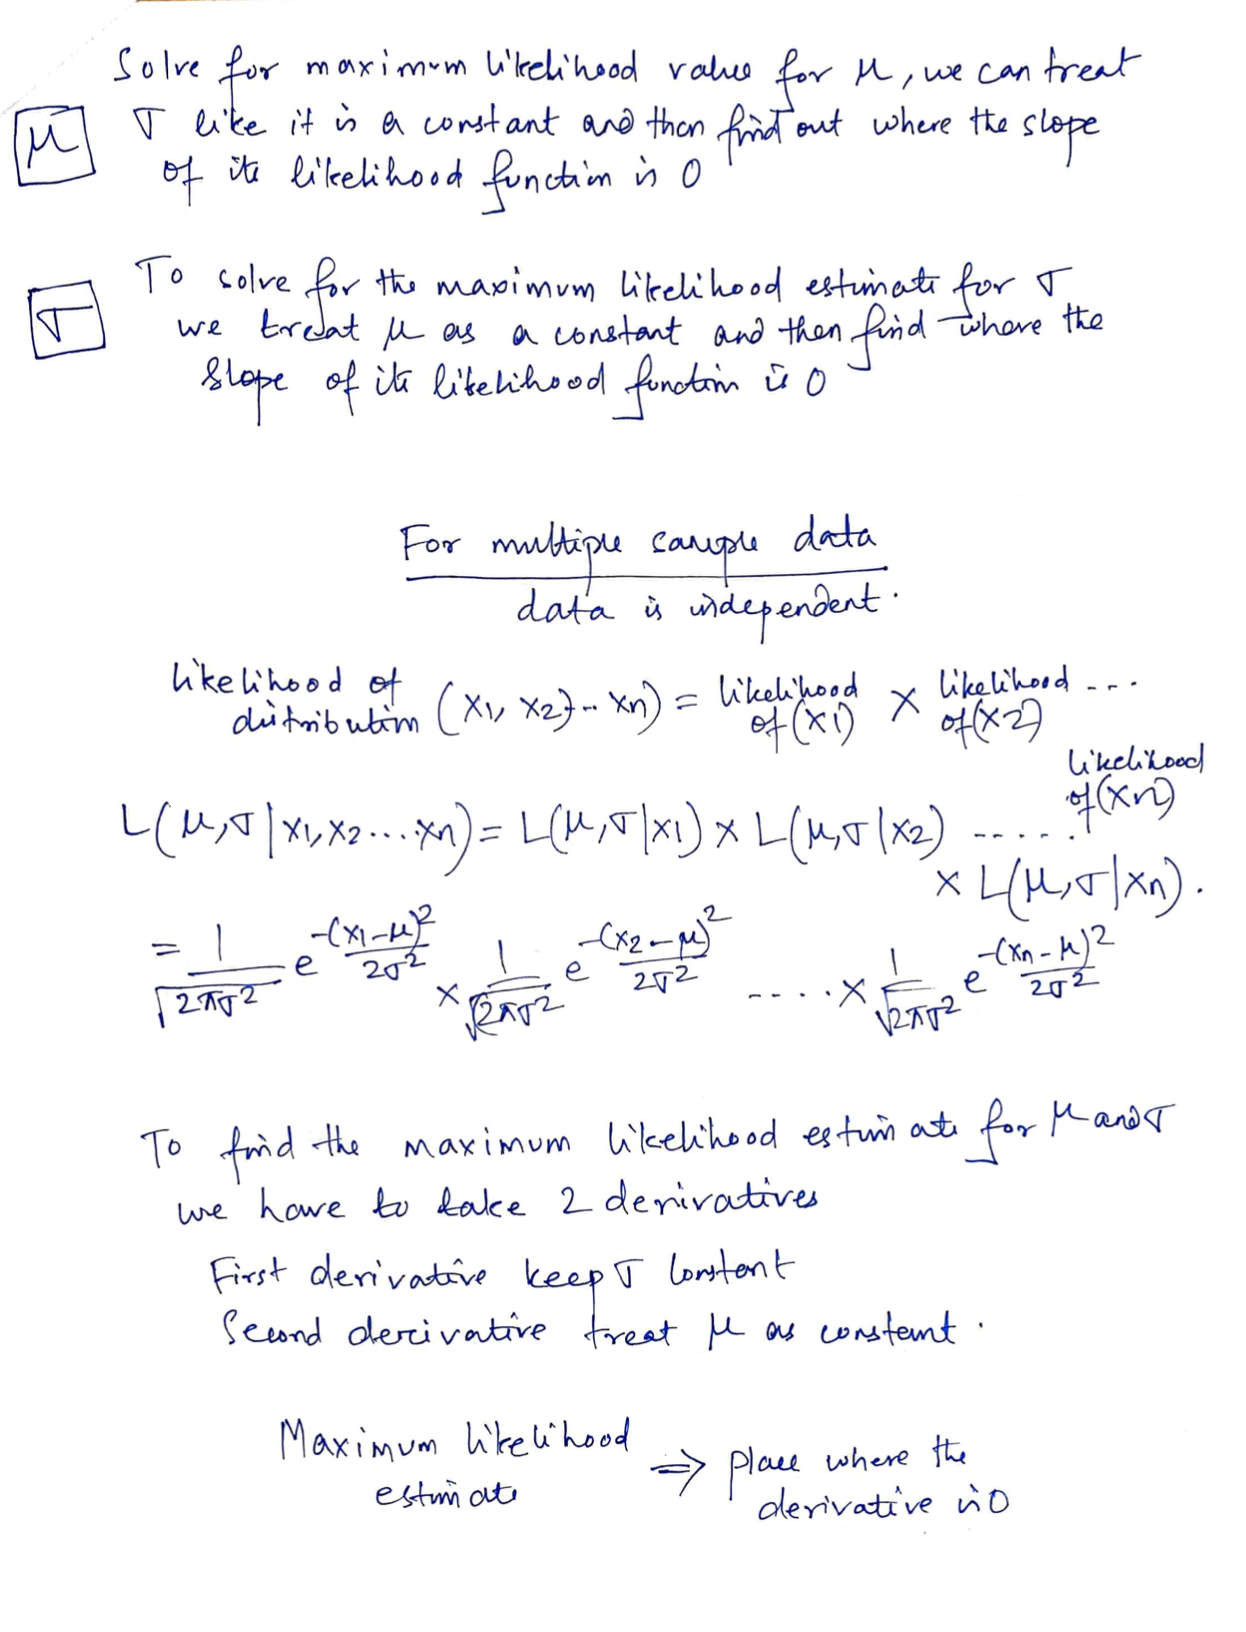 Solve for maximum likelihood value for μ, we can treat
μ
σ like it is a constant and then find out where the slope
of its likelihood function is 0
To solve for the maximum likelihood estimate for σ
σ
we treat μ as a constant and then find where the
slope of its likelihood function is 0
For multiple sample data
data is independent.
likelihood of distribution (x1, x2, .. xn) = likelihood of (x1) × likelihood of (x2) ...
likelihood of (xn)
L(μ,σ|x1,x2....xn) = L(μ,σ|x1) × L(μ,σ|x2) ......
× L(μ,σ|xn).
= 1/√2πσ² e^-(x1-μ)²/2σ² × 1/√2πσ² e^-(x2-μ)²/2σ² ....× 1/√2πσ² e^-(xn-μ)²/2σ²
To find the maximum likelihood estimate for μ and σ
we have to take 2 derivatives
First derivative keep σ constant
Second derivative treat μ as constant.
Maximum likelihood estimate ⇒ place where the
derivative is 0